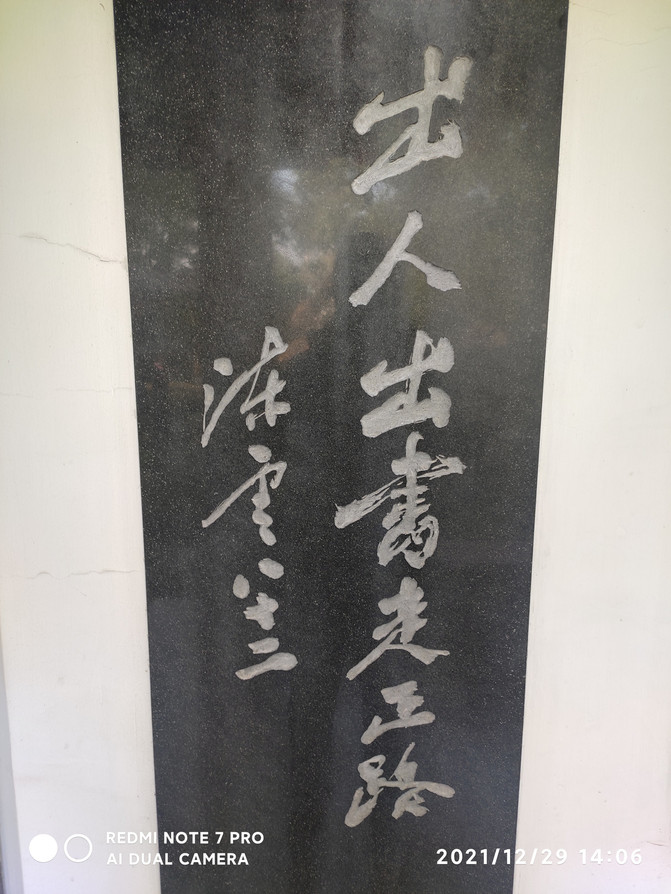 出人出書走正路
陈雲八十二
REDMI NOTE 7 PRO
AI DUAL CAMERA
2021/12/29 14:06